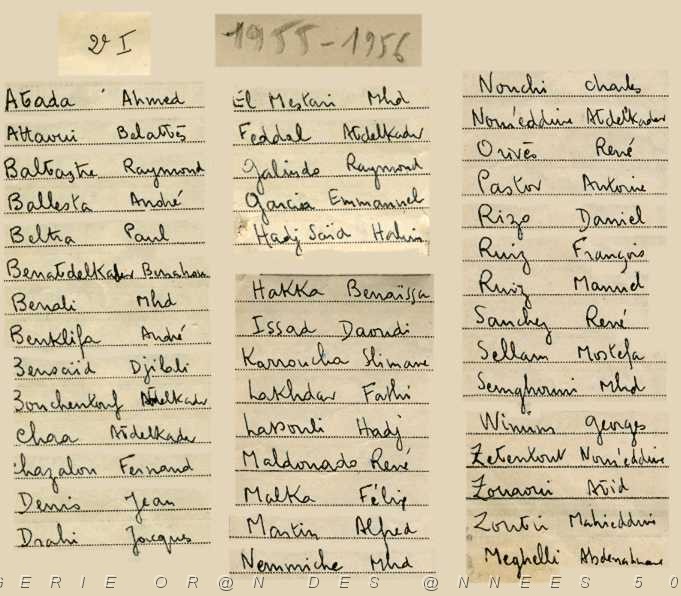 2e I
1955-1956
Abada Ahmed
Attaoui Belabbès
Baltastre Raymond
Ballesta André
Beltra Paul
Benabdelkader
Benali Mhd
Benklifa André
Bensaïd Djilali
Abdelkader
Chaa Abdelkader
Chazalon Fernand
Denis Jean
Drahi Jacques
El Mestari Mhd
Feddal Abdelkader
Galindo Raymond
Garcia Emmanuel
Hadj Saïd Halim
Hakka Benaïssa
Issad Daoudi
Karroucha Slimane
Lakhdar Fathi
Lassouli Hadj
Maldonado René
Malka Félix
Martin Alfred
Nemmiche Mhd
Nouchi Charles
Nour'eddine Abdelkader
Orivès René
Pastor Antoine
Rizo Daniel
Ruiz François
Ruiz Manuel
Sanchez René
Sellam Mostefa
Semghouni Mhd
Georges
Nour'eddine
Zouaoui Abid
Mahieddine
Meghelli
GERIE OR@N DES @NNEES 50